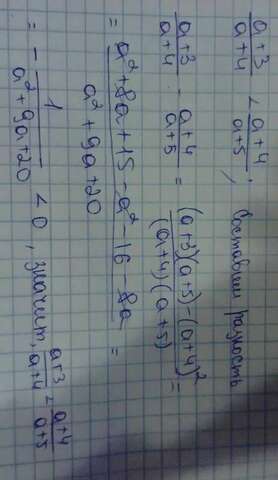 (a+3)/(a+4) < (a+4)/(a+5); Составим разность
(a+3)/(a+4) - (a+4)/(a+5) = ((a+3)(a+5)-(a+4)²)/((a+4)(a+5)) =
= (a²+8a+15-a²-16-8a)/(a²+9a+20) =
= - 1/(a²+9a+20) < 0, значит, (a+3)/(a+4) < (a+4)/(a+5)